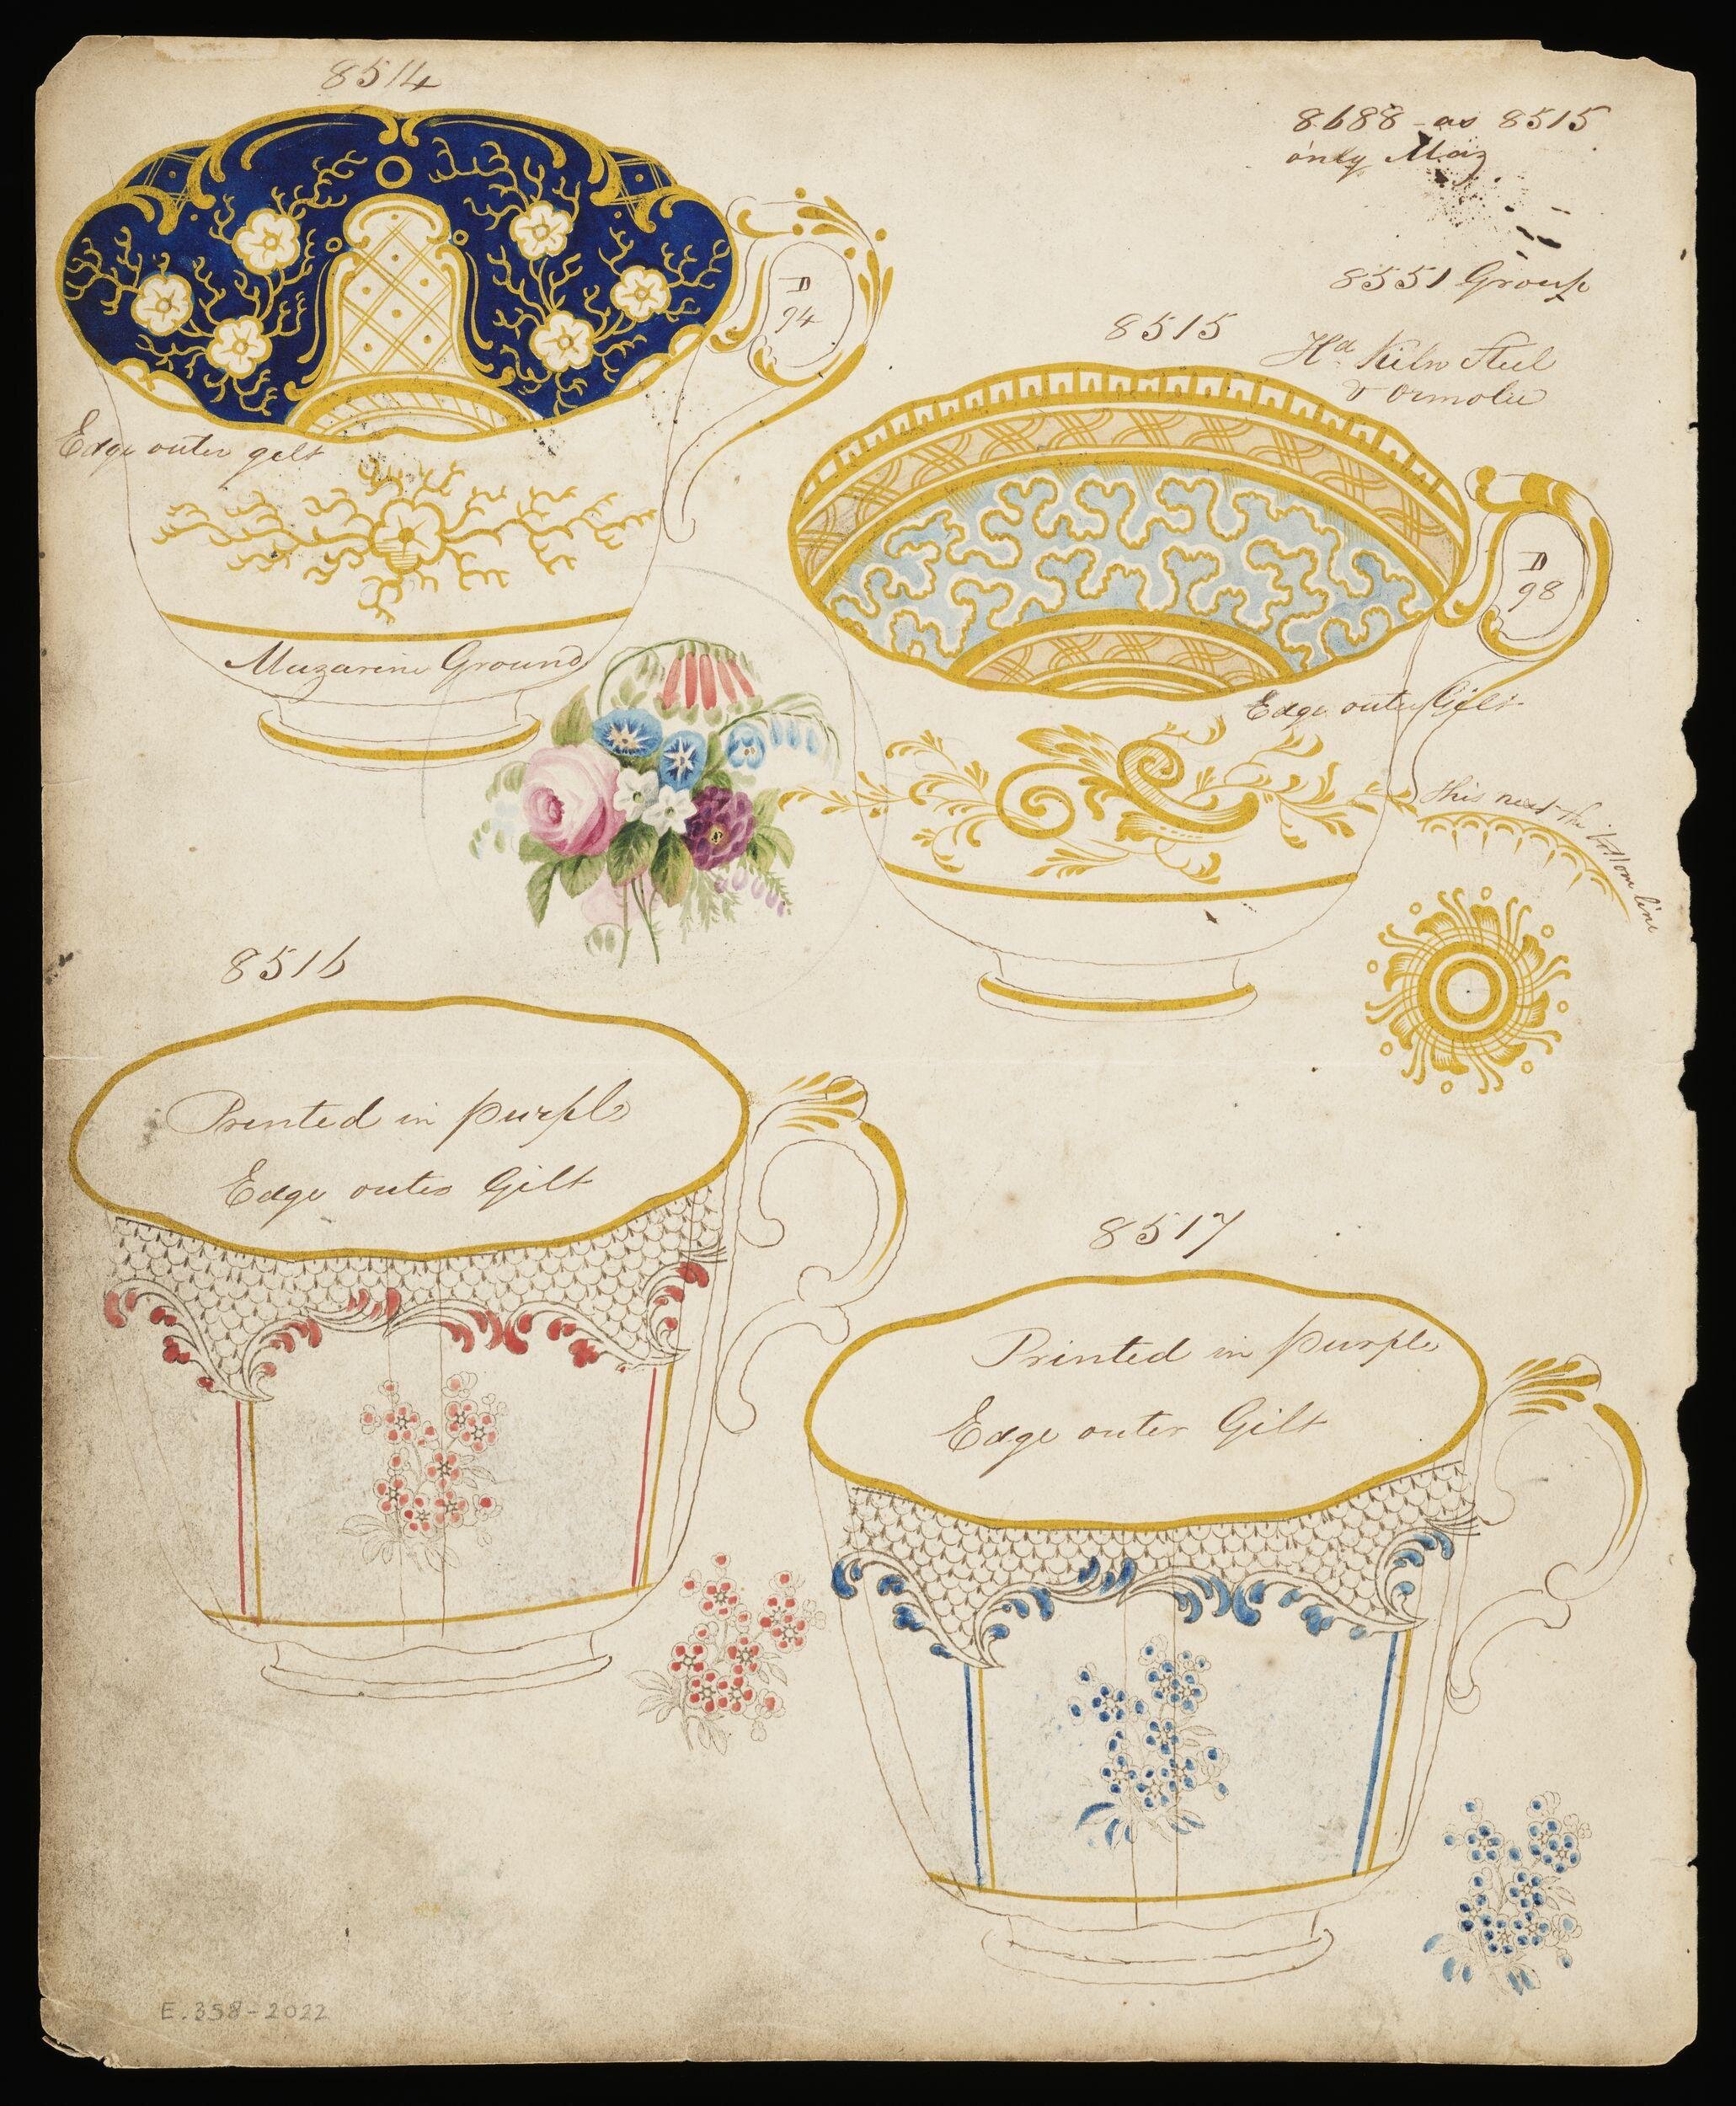 8514
8688 - as 8515
only Maz.
8551 Group
8515
Hd Kiln Steel
& Ormolu
D
94
Edge outer gelt
Mazarine Ground
D
98
Edge outer Gilt
this next the bottom line
8516
Printed in purple
Edge outer Gilt
8517
Printed in purple
Edge outer Gilt
E.358-2022